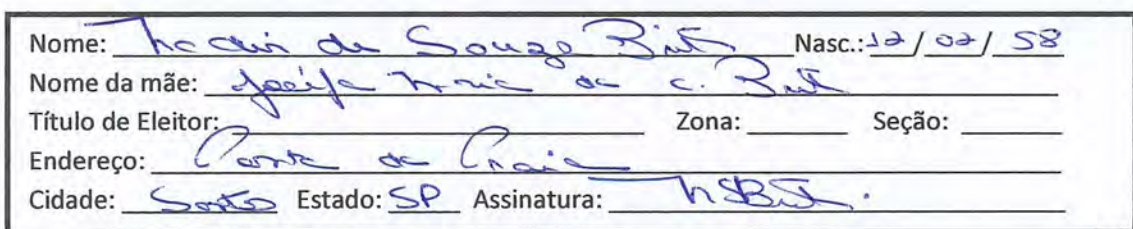 Nome: de Souza Brito Nasc.: 12/02/58
Nome da mãe: Josefa Maria da C. Brito
Título de Eleitor: Zona: Seção:
Endereço: Ponta da Praia
Cidade: Santos Estado: SP Assinatura: